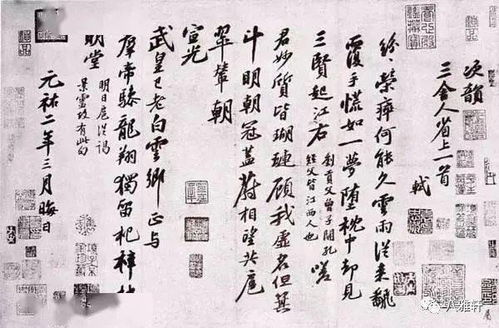 次韻
三舍人省上一首
軾
紛〻榮瘁何能久雲雨從來翻
覆手慌如一夢墮枕中却見
三賢起江右
劉貢父曾子開孔
經父皆江西人也
嗟
君妙質皆瑚璉顧我虛名但箕
斗明朝冠蓋蔚相望共扈
翠輦朝
宣光
武皇已老白雲鄉正與
羣帝驂龍翔獨留杞梓扶
明堂
明日扈從謁
景靈故有此句
元祐二年三月晦日
八雅轩